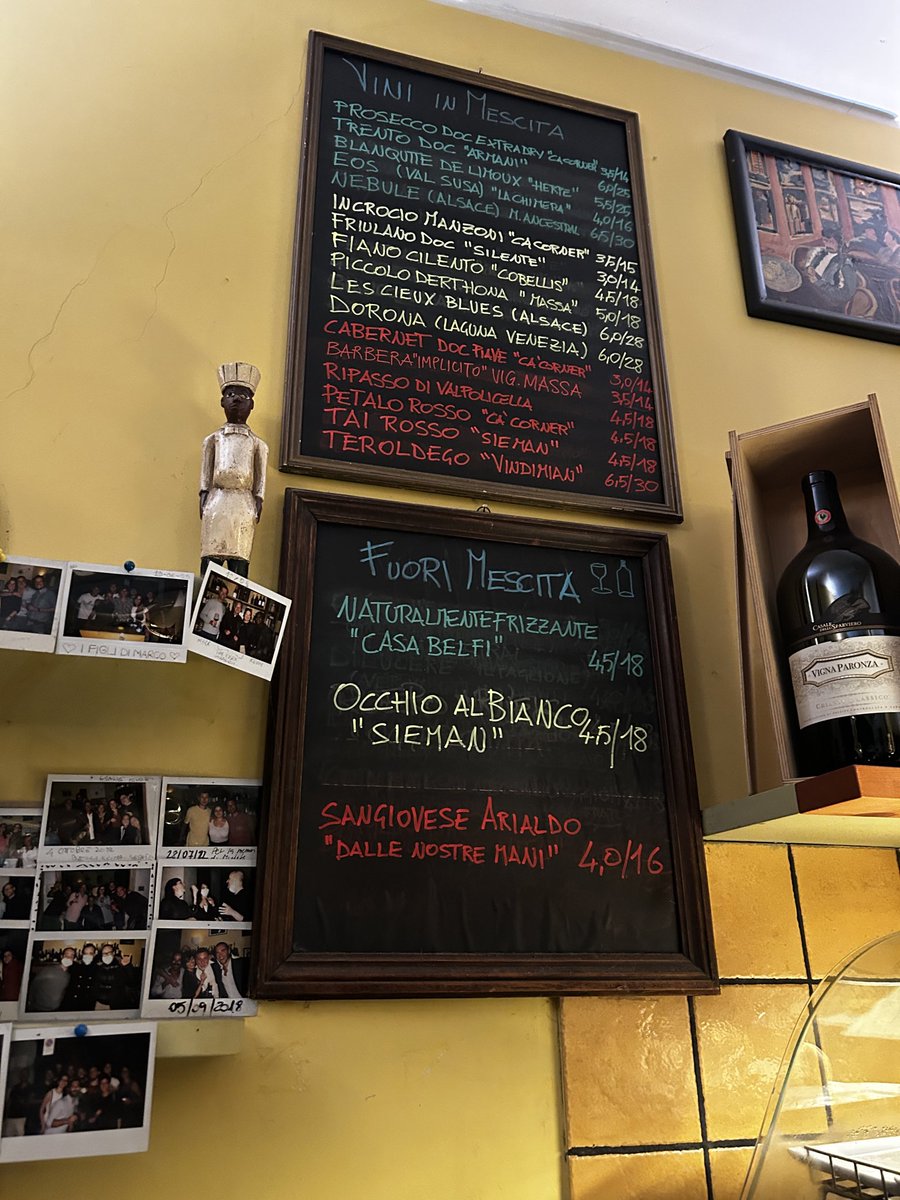 VINI IN MESCITA
PROSECCO DOC EXTRADRY "CA CORNER" 3,5/14
TRENTO DOC "ARMANI" 6,0/25
BLANQUITE DE LIMOUX "HERTE" 5,5/25
EOS (VAL SUSA) "LA CHIMERA" 4,0/16
NEBULE (ALSACE) M. ANCESTRAL 6,5/30
INCROCIO MANZONI "CA CORNER" 3,5/15
FRIULANO DOC "SILENTE" 3,0/14
FIANO CILENTO "COBELLIS" 4,5/18
PICCOLO DERTHONA "MASSA" 5,0/18
LES CIEUX BLUES (ALSACE) 6,0/28
DORONA (LAGUNA VENEZIA) 6,0/28
CABERNET DOC PIAVE "CA' CORNER" 3,0/14
BARBERA "IMPLICITO" VIG. MASSA 3,5/14
RIPASSO DI VALPOLICELLA 4,5/18
PETALO ROSSO "CA' CORNER" 4,5/18
TAI ROSSO "SIEMAN" 4,5/18
TEROLDEGO "VINDIMIAN" 6,5/30
FUORI MESCITA
NATURALMENTE FRIZZANTE
"CASA BELFI" 4,5/18
OCCHIO AL BIANCO
"SIEMAN" 4,5/18
SANGIOVESE ARIALDO
"DALLE NOSTRE MANI" 4,0/16
I FIGLI DI MARCO
28/07/22
05/09/2018
CASALE
DELLO SPARVIERO
VIGNA PARONZA
CHIANTI CLASSICO